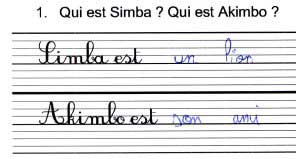 1. Qui est Simba ? Qui est Akimbo ?
Simba est un lion
Akimbo est son ami